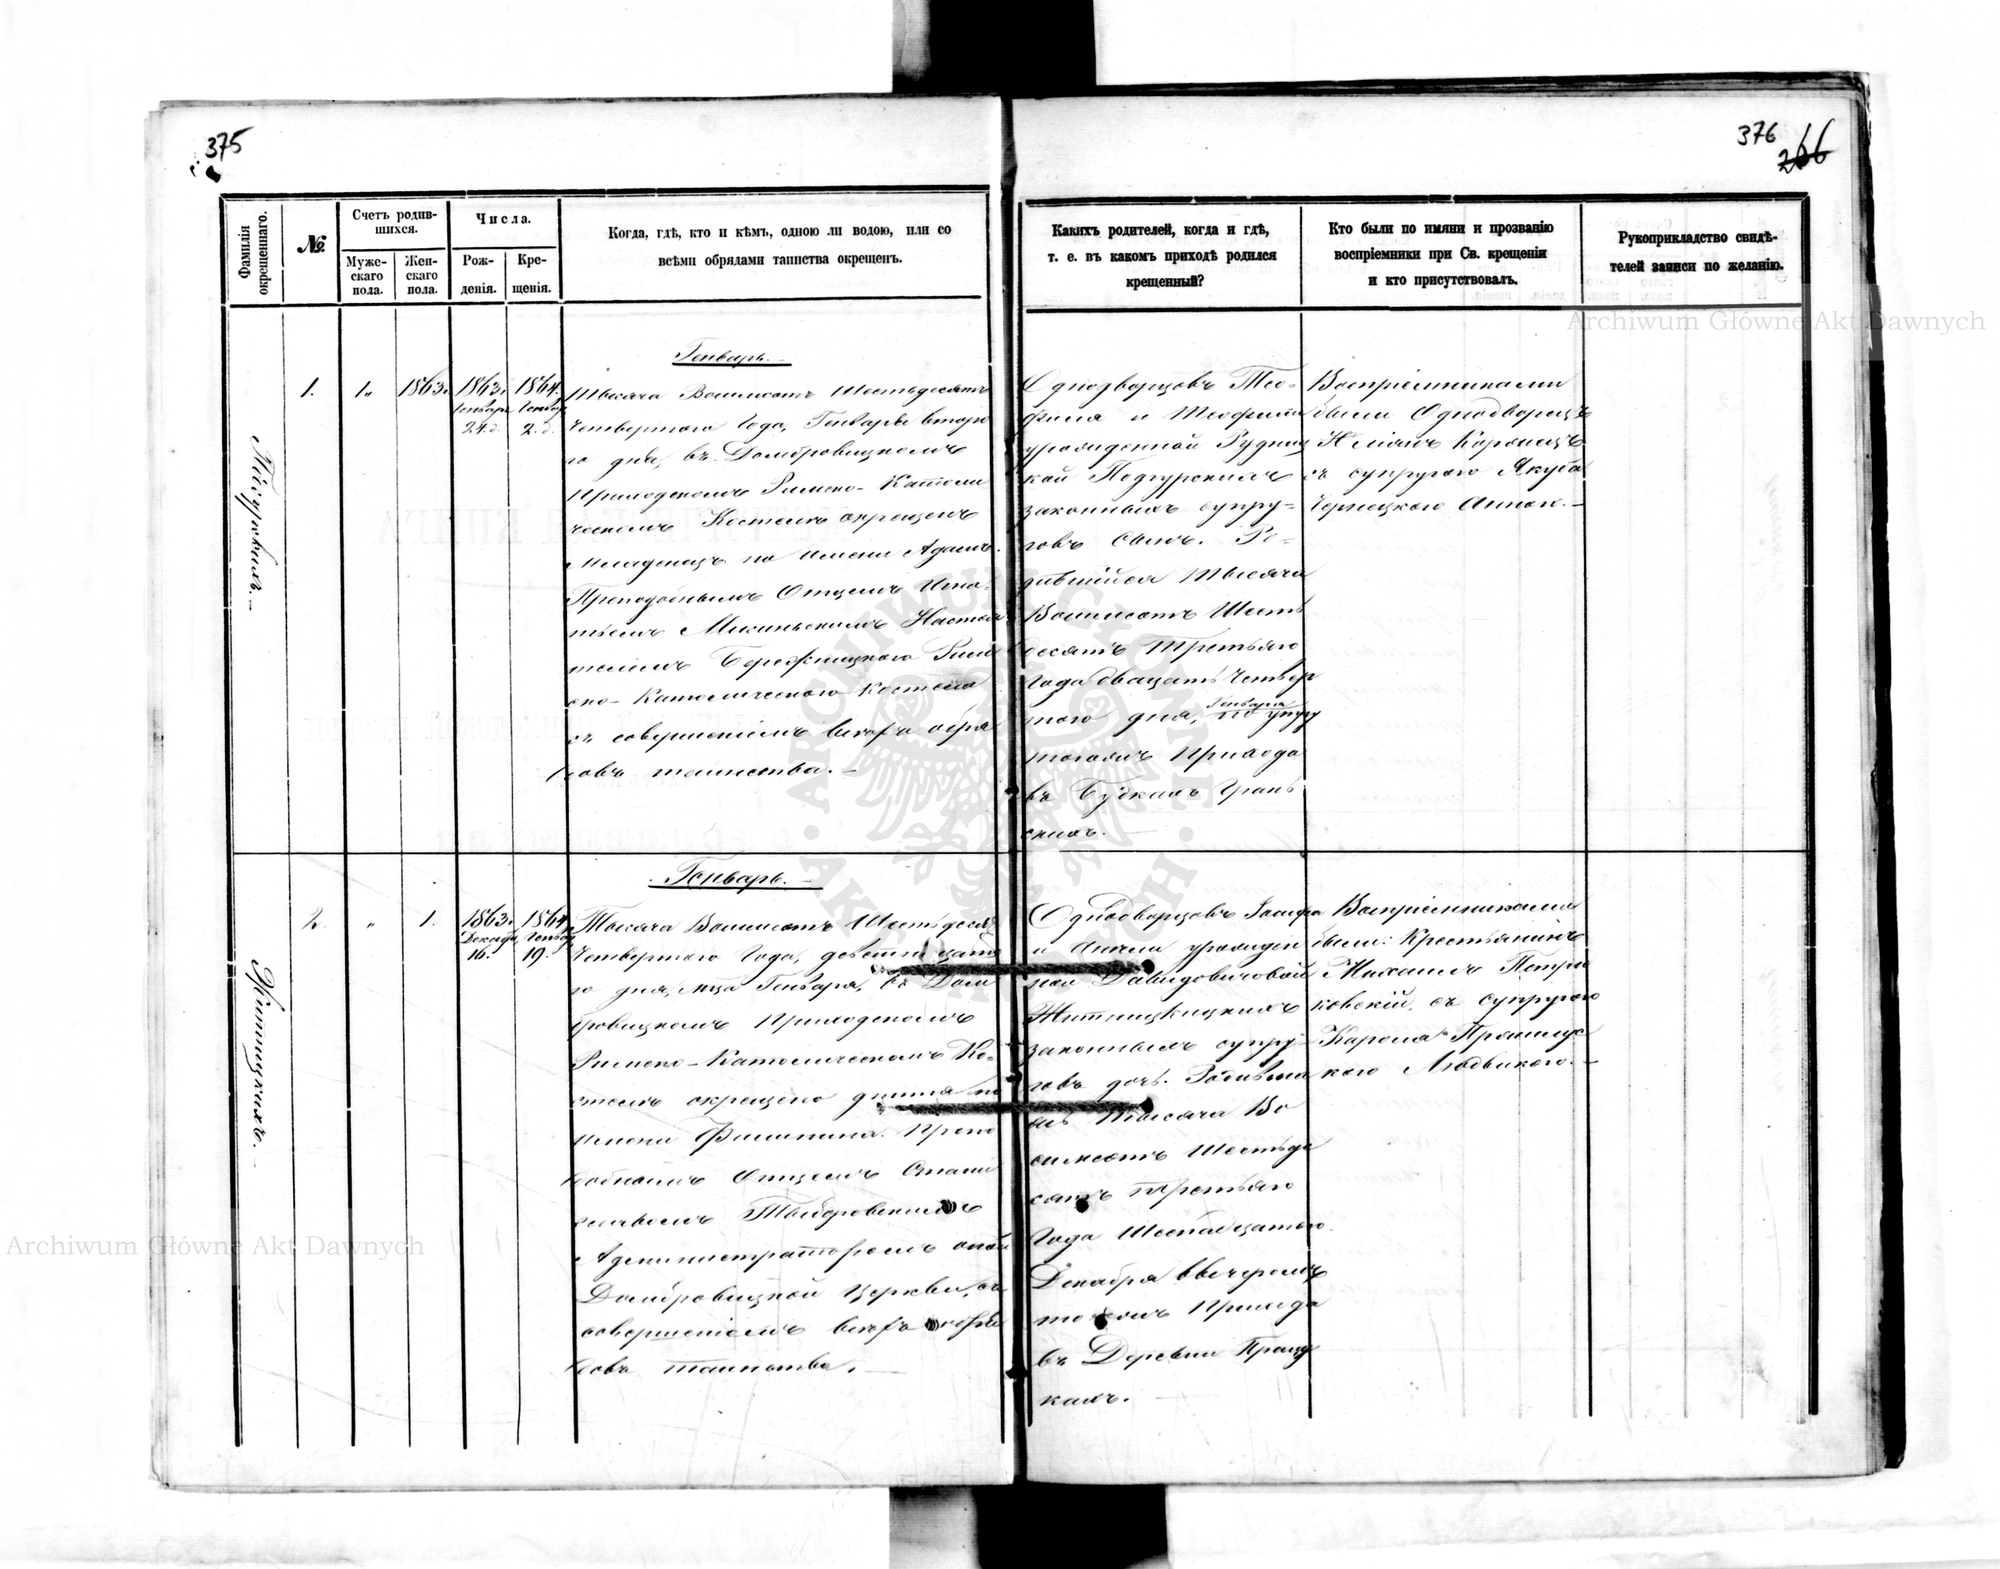 375
376
266
Фамилія окрещеннаго.
№.
Счетъ родив-
шихся.
Муже-
скаго
пола.
Жен-
скаго
пола.
Числа.
Рож-
денія.
Кре-
щенія.
Когда, гдѣ, кто и кѣмъ, одною ли водою, или со
всѣми обрядами таинства окрещенъ.
Какихъ родителей, когда и гдѣ,
т. е. въ какомъ приходѣ родился
крещенный?
Кто были по имяни и прозванію
воспріемники при Св. крещеніи
и кто присутствовалъ.
Рукоприкладство свидѣ-
телей записи по желанію.
1.
1„
1863.
1863.
Генваря
24. д.
1864.
Генвар
2. д.
Генварь.
Тысяча Восемсотъ Шестьдесятъ
Четвертого Года, Генваря второ
го дня, въ Домбровицкомъ
Приходскомъ Римско-Католи
ческомъ Костелѣ окрещенъ
Младенецъ по имени Адамъ.
Преподобнымъ Отцемъ Игна-
тіемъ Настоя
телемъ Бережницкого Рим
ско-Католического Костела
съ совершеніемъ всехъ обря
довъ таинства.
Однодворцовъ Тео-
филя и Теофилы
урожденной Рудниц
кой Подгурскихъ
законныхъ супру-
говъ Сынъ. Ро-
дившійся Тысяча
Восемсотъ Шесть
десятъ Третьяго
Года двацать Четвер
того дня, Генваря
тогожъ Прихода
въ Будкахъ
скихъ.
Воспріемниками
были Однодворецъ
съ супругою Якуба
Анною.
2.
„
1.
1863.
Декабр
16.
1864.
Генвар
19.
Генварь.
Тысяча Восемсотъ Шестьдеся
Четвертого Года, девятнадцато
го дня, мца Генваря, въ Дом
бровицкомъ Приходскомъ
Римско-Католическомъ Ко-
стелѣ окрещено дитя по
имени Филипина. Препо
добнымъ Отцемъ Стани
славомъ
Администраторомъ оной
Домбровицкой Церкви, съ
совершеніемъ всехъ обря
довъ таинства.
Однодворцовъ Іосифа
и Анели урожден
ной Давидовичовой
законныхъ супру-
говъ дочь. Родивша
яся Тысяча Во
семсотъ Шестьде
сятъ третьяго
Года Шестнадцатого
Декабря
тогожъ Прихода
въ Деревни
кахъ.
Воспріемниками
были: Крестьянинъ
Михаилъ Петри
ковскій, съ супругою
Кароля
кого Людвикою.
Archiwum Główne Akt Dawnych
Archiwum Główne Akt Dawnych
ARCHIWUM GŁÓWNE AKT DAWNYCH